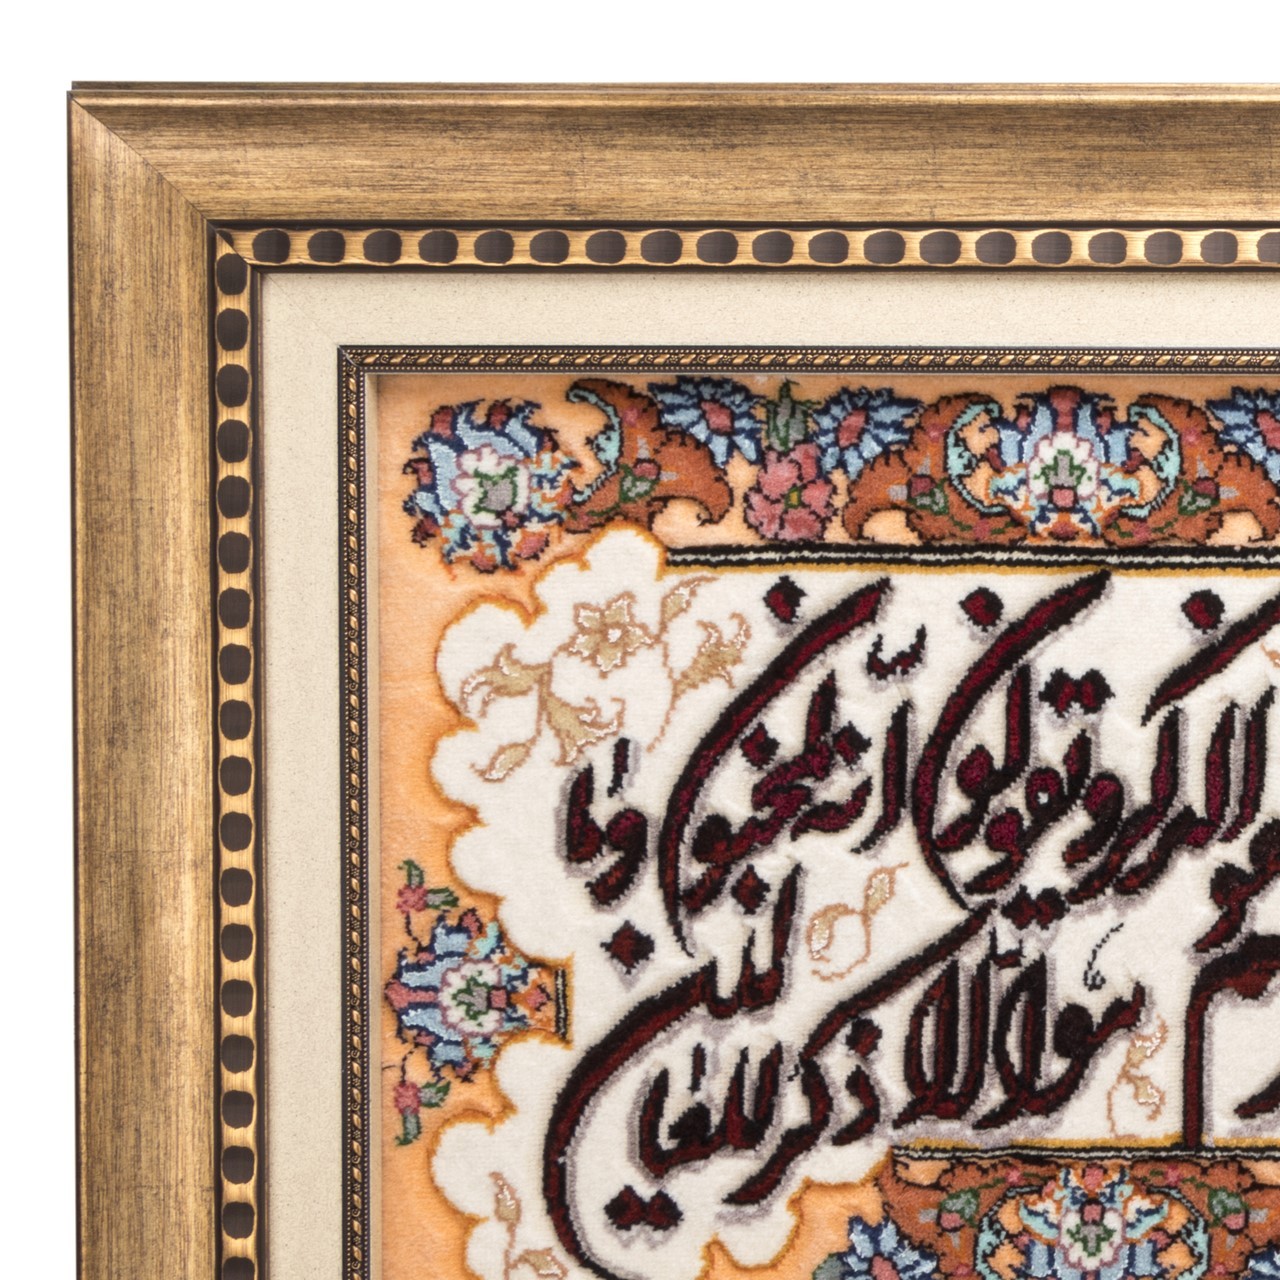 الذكر ويقولون انّه لمجنون وما
هو الا ذكر للعالمين